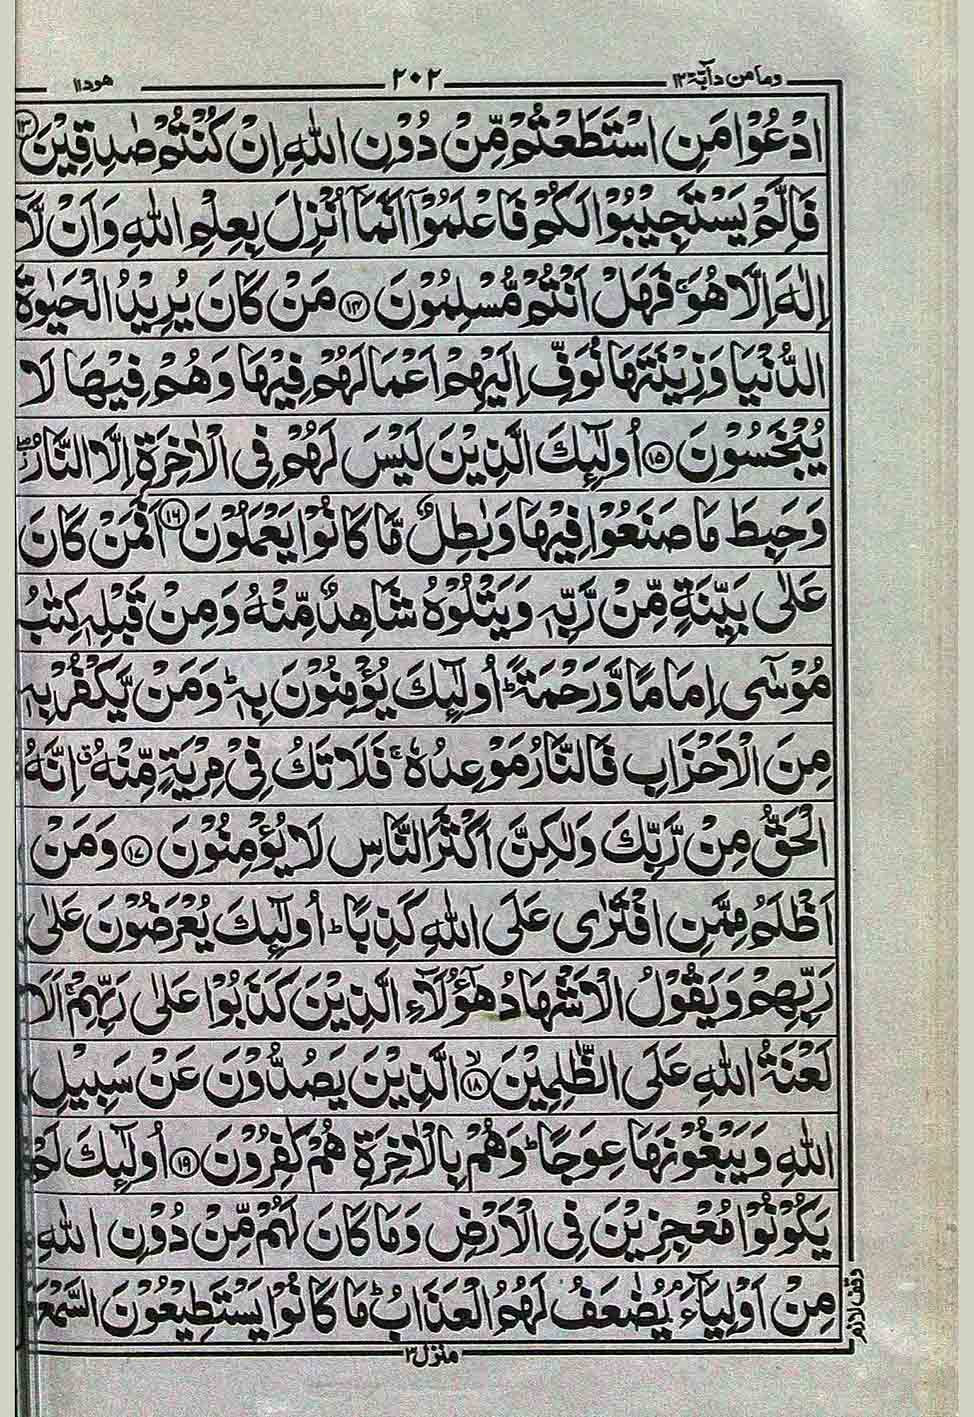 وما من دآبة ۱۲ ۲۰۲ هود ۱۱
ادْعُوْا مَنِ اسْتَطَعْتُمْ مِّنْ دُوْنِ اللّٰهِ اِنْ كُنْتُمْ صٰدِقِيْنَ ۝۱۳
فَاِلَّمْ يَسْتَجِيْبُوْا لَكُمْ فَاعْلَمُوْۤا اَنَّمَاۤ اُنْزِلَ بِعِلْمِ اللّٰهِ وَاَنْ لَّاۤ
اِلٰهَ اِلَّا هُوَ ۚ فَهَلْ اَنْتُمْ مُّسْلِمُوْنَ ۝۱۴ مَنْ كَانَ يُرِيْدُ الْحَيٰوةَ
الدُّنْيَا وَزِيْنَتَهَا نُوَفِّ اِلَيْهِمْ اَعْمَالَهُمْ فِيْهَا وَهُمْ فِيْهَا لَا
يُبْخَسُوْنَ ۝۱۵ اُولٰٓئِكَ الَّذِيْنَ لَيْسَ لَهُمْ فِى الْاٰخِرَةِ اِلَّا النَّارُ ۖ
وَحَبِطَ مَا صَنَعُوْا فِيْهَا وَبٰطِلٌ مَّا كَانُوْا يَعْمَلُوْنَ ۝۱۶ اَفَمَنْ كَانَ
عَلٰى بَيِّنَةٍ مِّنْ رَّبِّهٖ وَيَتْلُوْهُ شَاهِدٌ مِّنْهُ وَمِنْ قَبْلِهٖ كِتٰبُ
مُوْسٰٓى اِمَامًا وَّرَحْمَةً ؕ اُولٰٓئِكَ يُؤْمِنُوْنَ بِهٖ ؕ وَمَنْ يَّكْفُرْ بِهٖ
مِنَ الْاَحْزَابِ فَالنَّارُ مَوْعِدُهٗ ۚ فَلَا تَكُ فِيْ مِرْيَةٍ مِّنْهُ ۗ اِنَّهُ
الْحَقُّ مِنْ رَّبِّكَ وَلٰكِنَّ اَكْثَرَ النَّاسِ لَا يُؤْمِنُوْنَ ۝۱۷ وَمَنْ
اَظْلَمُ مِمَّنِ افْتَرٰى عَلَى اللّٰهِ كَذِبًا ؕ اُولٰٓئِكَ يُعْرَضُوْنَ عَلٰى
رَبِّهِمْ وَيَقُوْلُ الْاَشْهَادُ هٰٓؤُلَآءِ الَّذِيْنَ كَذَبُوْا عَلٰى رَبِّهِمْ ۚ اَلَا
لَعْنَةُ اللّٰهِ عَلَى الظّٰلِمِيْنَ ۝۱۸ۙ الَّذِيْنَ يَصُدُّوْنَ عَنْ سَبِيْلِ
اللّٰهِ وَيَبْغُوْنَهَا عِوَجًا ؕ وَهُمْ بِالْاٰخِرَةِ هُمْ كٰفِرُوْنَ ۝۱۹ اُولٰٓئِكَ لَمْ
يَكُوْنُوْا مُعْجِزِيْنَ فِى الْاَرْضِ وَمَا كَانَ لَهُمْ مِّنْ دُوْنِ اللّٰهِ
مِنْ اَوْلِيَآءَ ۘ يُضٰعَفُ لَهُمُ الْعَذَابُ ؕ مَا كَانُوْا يَسْتَطِيْعُوْنَ السَّمْعَ
وقف لازم
منزل ۳